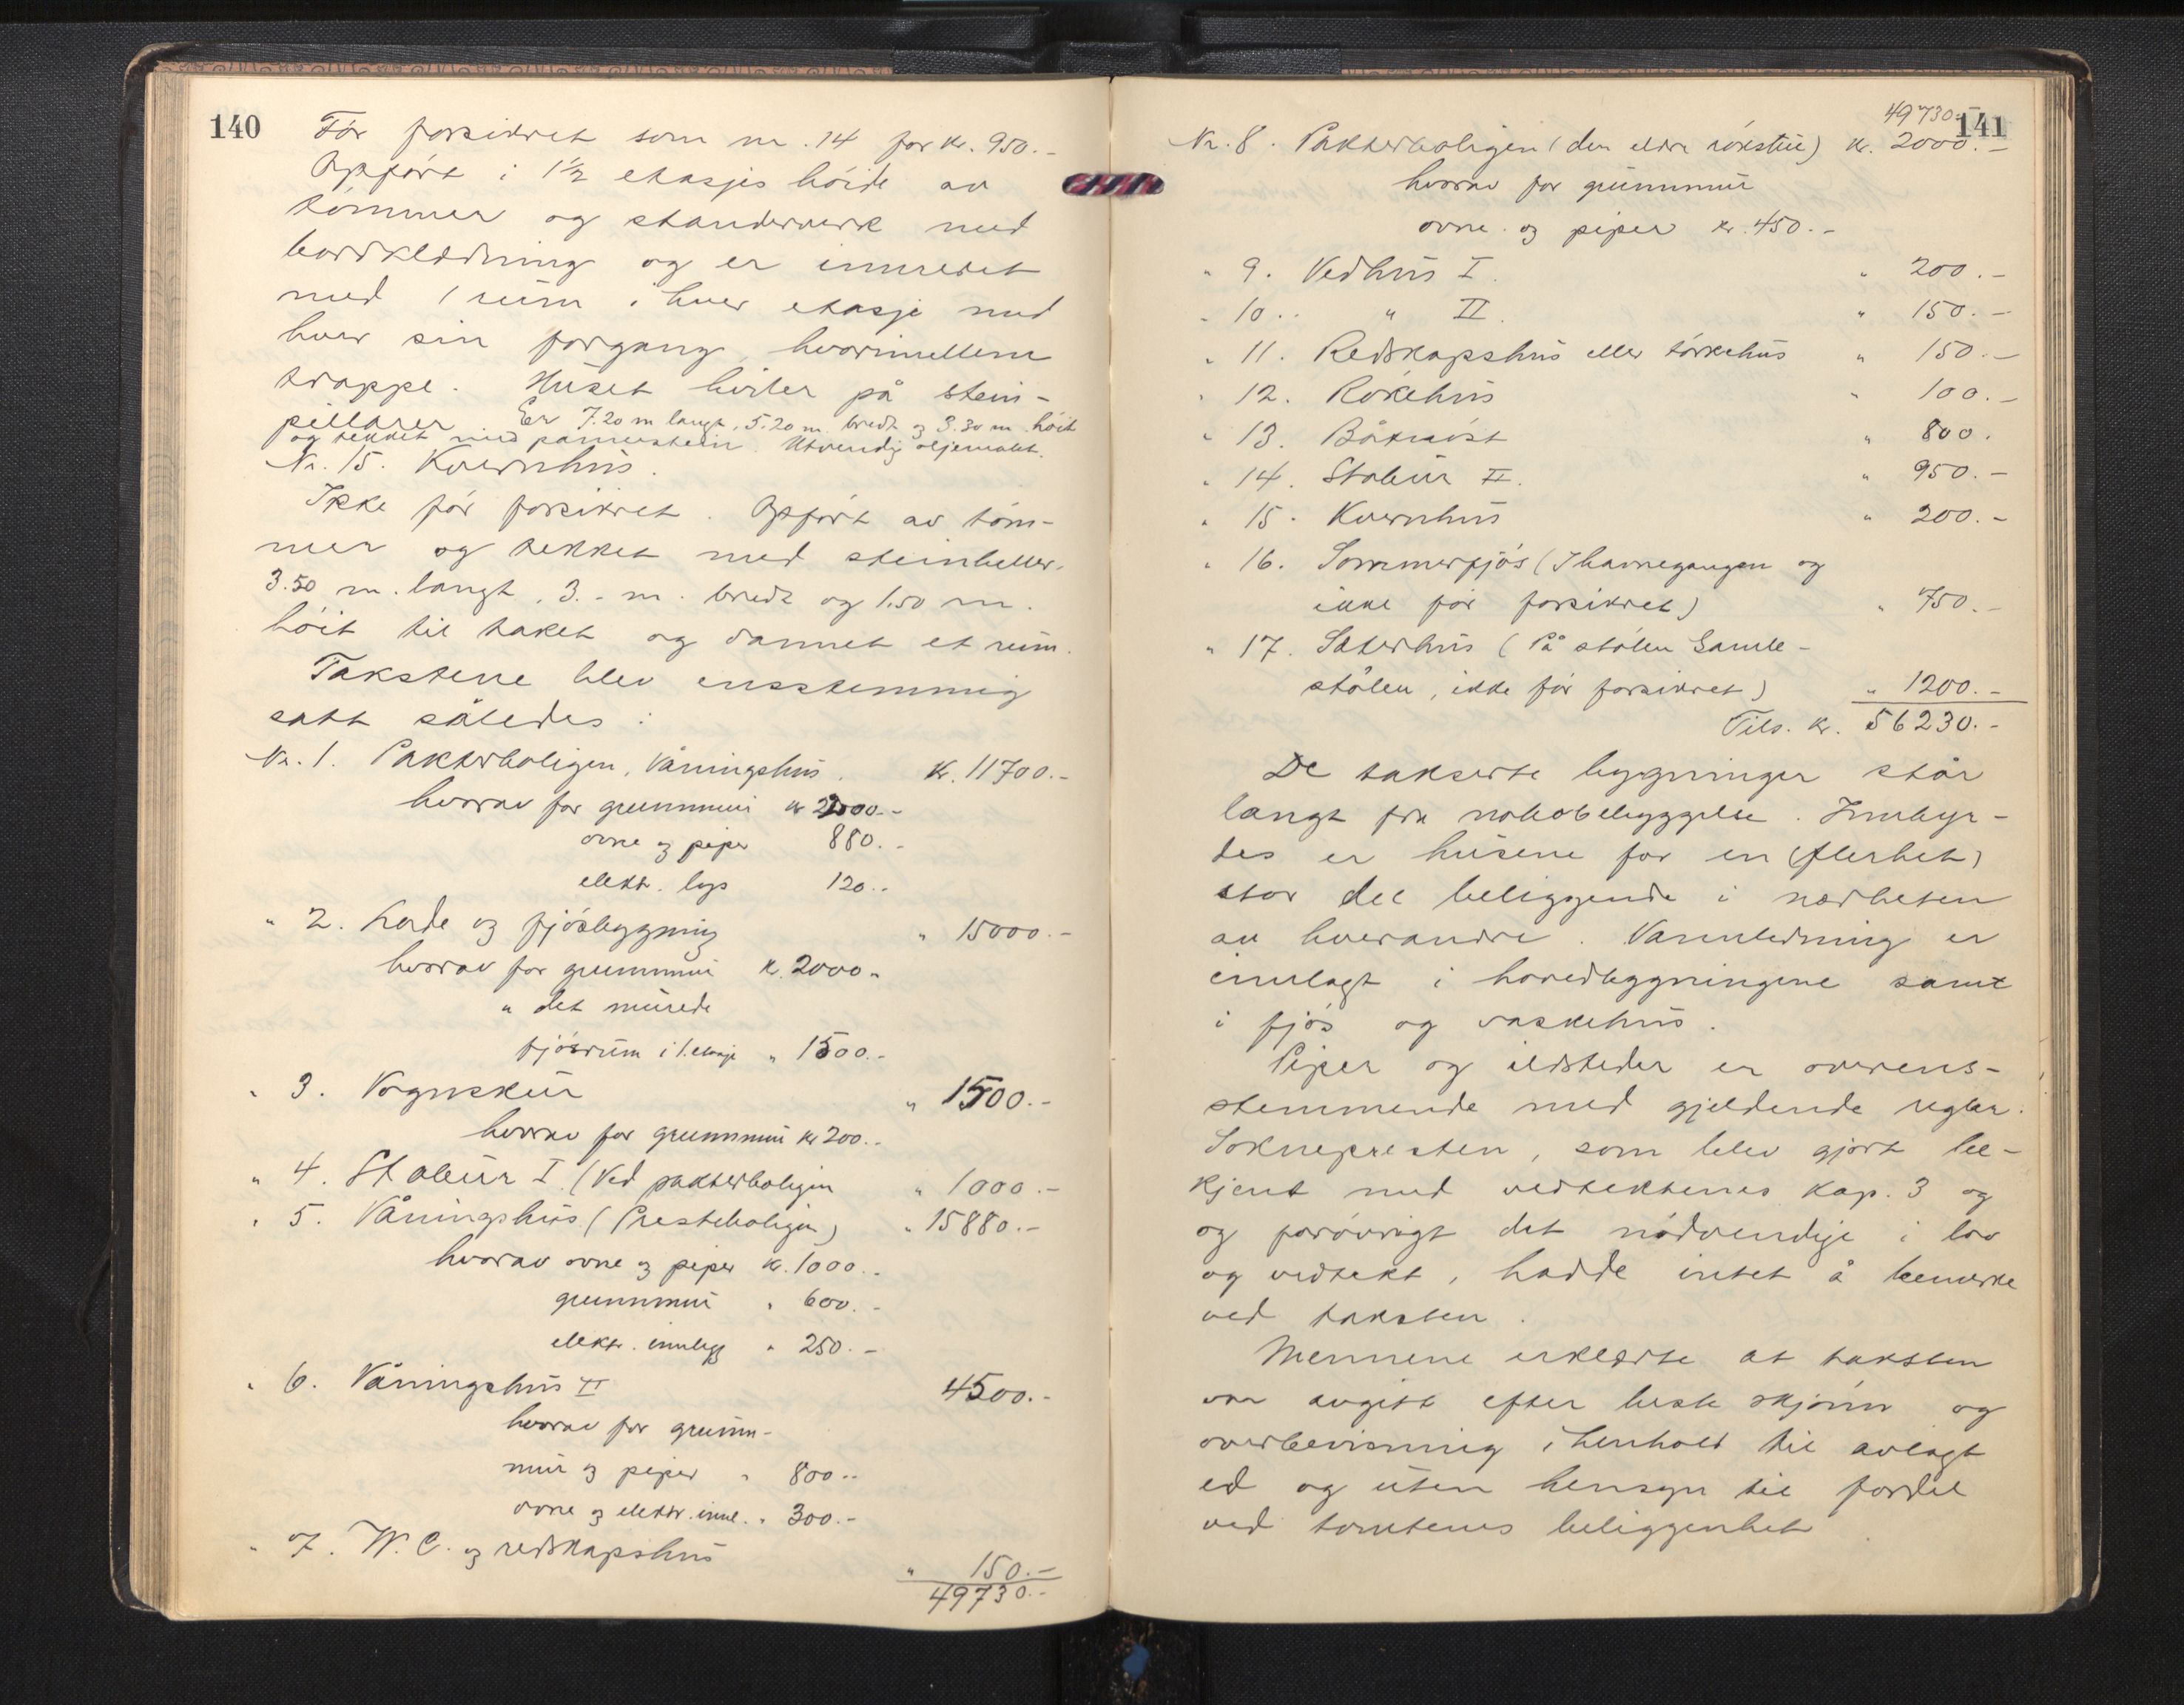 140
Før forsikret som nr. 14 for kr. 950.-
Opført i 1½ etasjes høide av
tømmer og standerverk med
bordklædning og er innredet
med 1 rum i hver etasje med
hver sin forgang, hvorimellem
trappe. Huset hviler på stein-
pillarer Er 7.20 m langt, 5.20 m. bredt og 3.30 m. høit
og tekket med pannestein. Utvendig oljemalt.
Nr. 15. Kvernhus.
Ikke før forsikret. Opført av tøm-
mer og tekket med steinheller.
3.50 m. langt, 3.- m. bredt og 1.50 m.
høit til taket og dannet et rum.
Takstene blev ensstemmig
satt således:
Nr. 1. Pakterboligen, Våningshus. Kr. 11700.-
hvorav for grunnmur kr 2000.-
ovne og piper 880.-
elektr. lys 120.-
" 2. Løde og fjøsbygning " 15000.-
hvorav for grunnmur kr. 2000.-
" det murede
fjøsrum i 1. etasje " 1500.-
" 3. Vognskur " 1500.-
hvorav for grunnmur kr 200.-
" 4. Stabur I. (Ved pakterboligen " 1000.-
" 5. Våningshus (Presteboligen) " 15880.-
hvorav ovne og piper kr. 1000.-
grunnmur " 600.-
elektr. innlegg " 250.-
" 6. Våningshus II 4500.-
hvorav for grunn-
mur og piper " 800.-
ovne og elektr. innl. " 300.-
" 7. W. C. og redskapshus " 150.-
49730.-
141
49730.-
Nr. 8. Pakterboligen (den eldre røkstue) kr. 2000.-
hvorav for grunnmur
ovne og piper kr. 450.-
" 9. Vedhus I. " 200.-
" 10. " II. " 150.-
" 11. Redskapshus eller tørkehus " 150.-
" 12. Røkehus " 100.-
" 13. Båtnøst " 800.
" 14. Stabur II. " 950.-
" 15. Kvernhus " 200.-
" 16. Sommerfjøs (I havnegangen og
ikke før forsikret) " 750.-
" 17. Sæterhus (På stølen Gamle-
stølen, ikke før forsikret) " 1200.-
Tils. kr. 56230.-
De takserte bygninger står
langt fra nabobebyggelse. Innbyr-
des er husene for en (flerhet)
stor del beliggende i nærheten
av hverandre. Vannledning er
innlagt i hovedbygningene samt
i fjøs og vaskehus.
Piper og ildsteder er overens-
stemmende med gjeldende regler.
Sokneprersten, som blev gjort be-
kjent med vedtektenes kap. 3 og
og forøvrigt det nødvendige i lov
og vedtekt, hadde intet å bemerke
ved taksten.
Mennene erklærte at taksten
var avgitt efter beste skjønn og
overbevisning i henhold til avlagt
ed og uten hensyn til fordel
ved tomtenes beliggenhet.